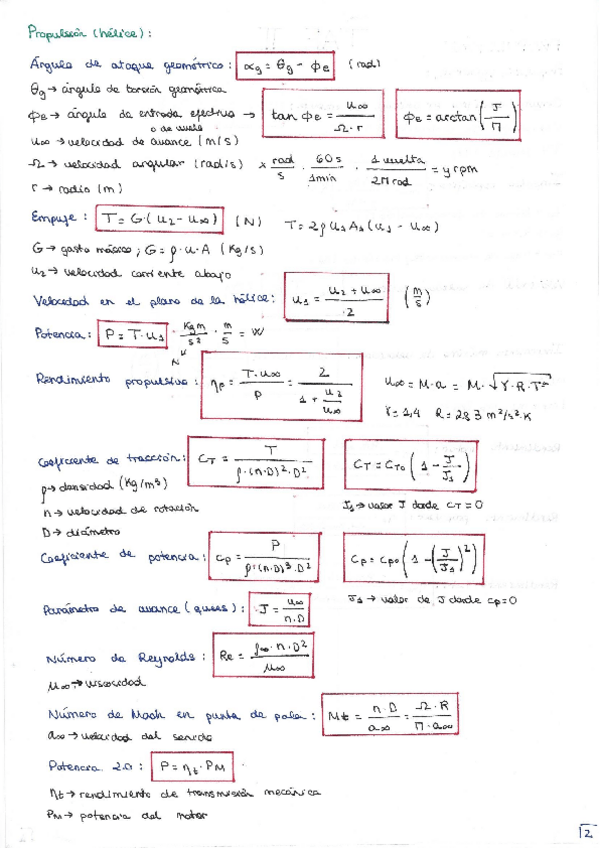 Propulsión (hélice):
Ángulo de ataque geométrico: αg = θg - ϕe (rad)
θg → ángulo de torsión geométrica
ϕe → ángulo de entrada efectivo → tan ϕe = u∞ / Ω·r ϕe = arctan(J/Π)
o de vuelo
u∞ → velocidad de avance (m/s)
Ω → velocidad angular (rad/s) x rad/s · 60 s/1 min · 1 vuelta/2Π rad = y rpm
r → radio (m)
Empuje: T = G·(u2 - u∞) (N) T = 2ρ u1 A1 (u1 - u∞)
G → gasto másico; G = ρ·u·A (Kg/s)
u2 → velocidad corriente abajo
Velocidad en el plano de la hélice: u1 = (u2 + u∞)/2 (m/s)
Potencia: P = T·u1 · Kg m/s² · m/s = W
N
Rendimiento propulsivo: ηp = T·u∞/P = 2/(1 + u2/u∞) u∞ = M·a = M·√γ·R·T
γ = 1,4 R = 283 m²/s²·K
Coeficiente de tracción: CT = T/(ρ·(n·D)²·D²) CT = CT0 (1 - J/J1)
ρ → densidad (Kg/m³)
n → velocidad de rotación J1 → valor J donde CT = 0
D → diámetro
Coeficiente de potencia: Cp = P/(ρ·(n·D)³·D²) Cp = Cp0 (1 - (J/J1)²)
J1 → valor de J donde Cp = 0
Parámetro de avance ( ): J = u∞/(n·D)
Número de Reynolds: Re = ρ∞·n·D²/μ∞
μ∞ → viscosidad
Número de Mach en punta de pala: Mt = n·D/a∞ = Ω·R/(Π·a∞)
a∞ → velocidad del sonido
Potencia 2.0: P = ηt·PM
ηt → rendimiento de transmisión mecánica
PM → potencia del motor
2